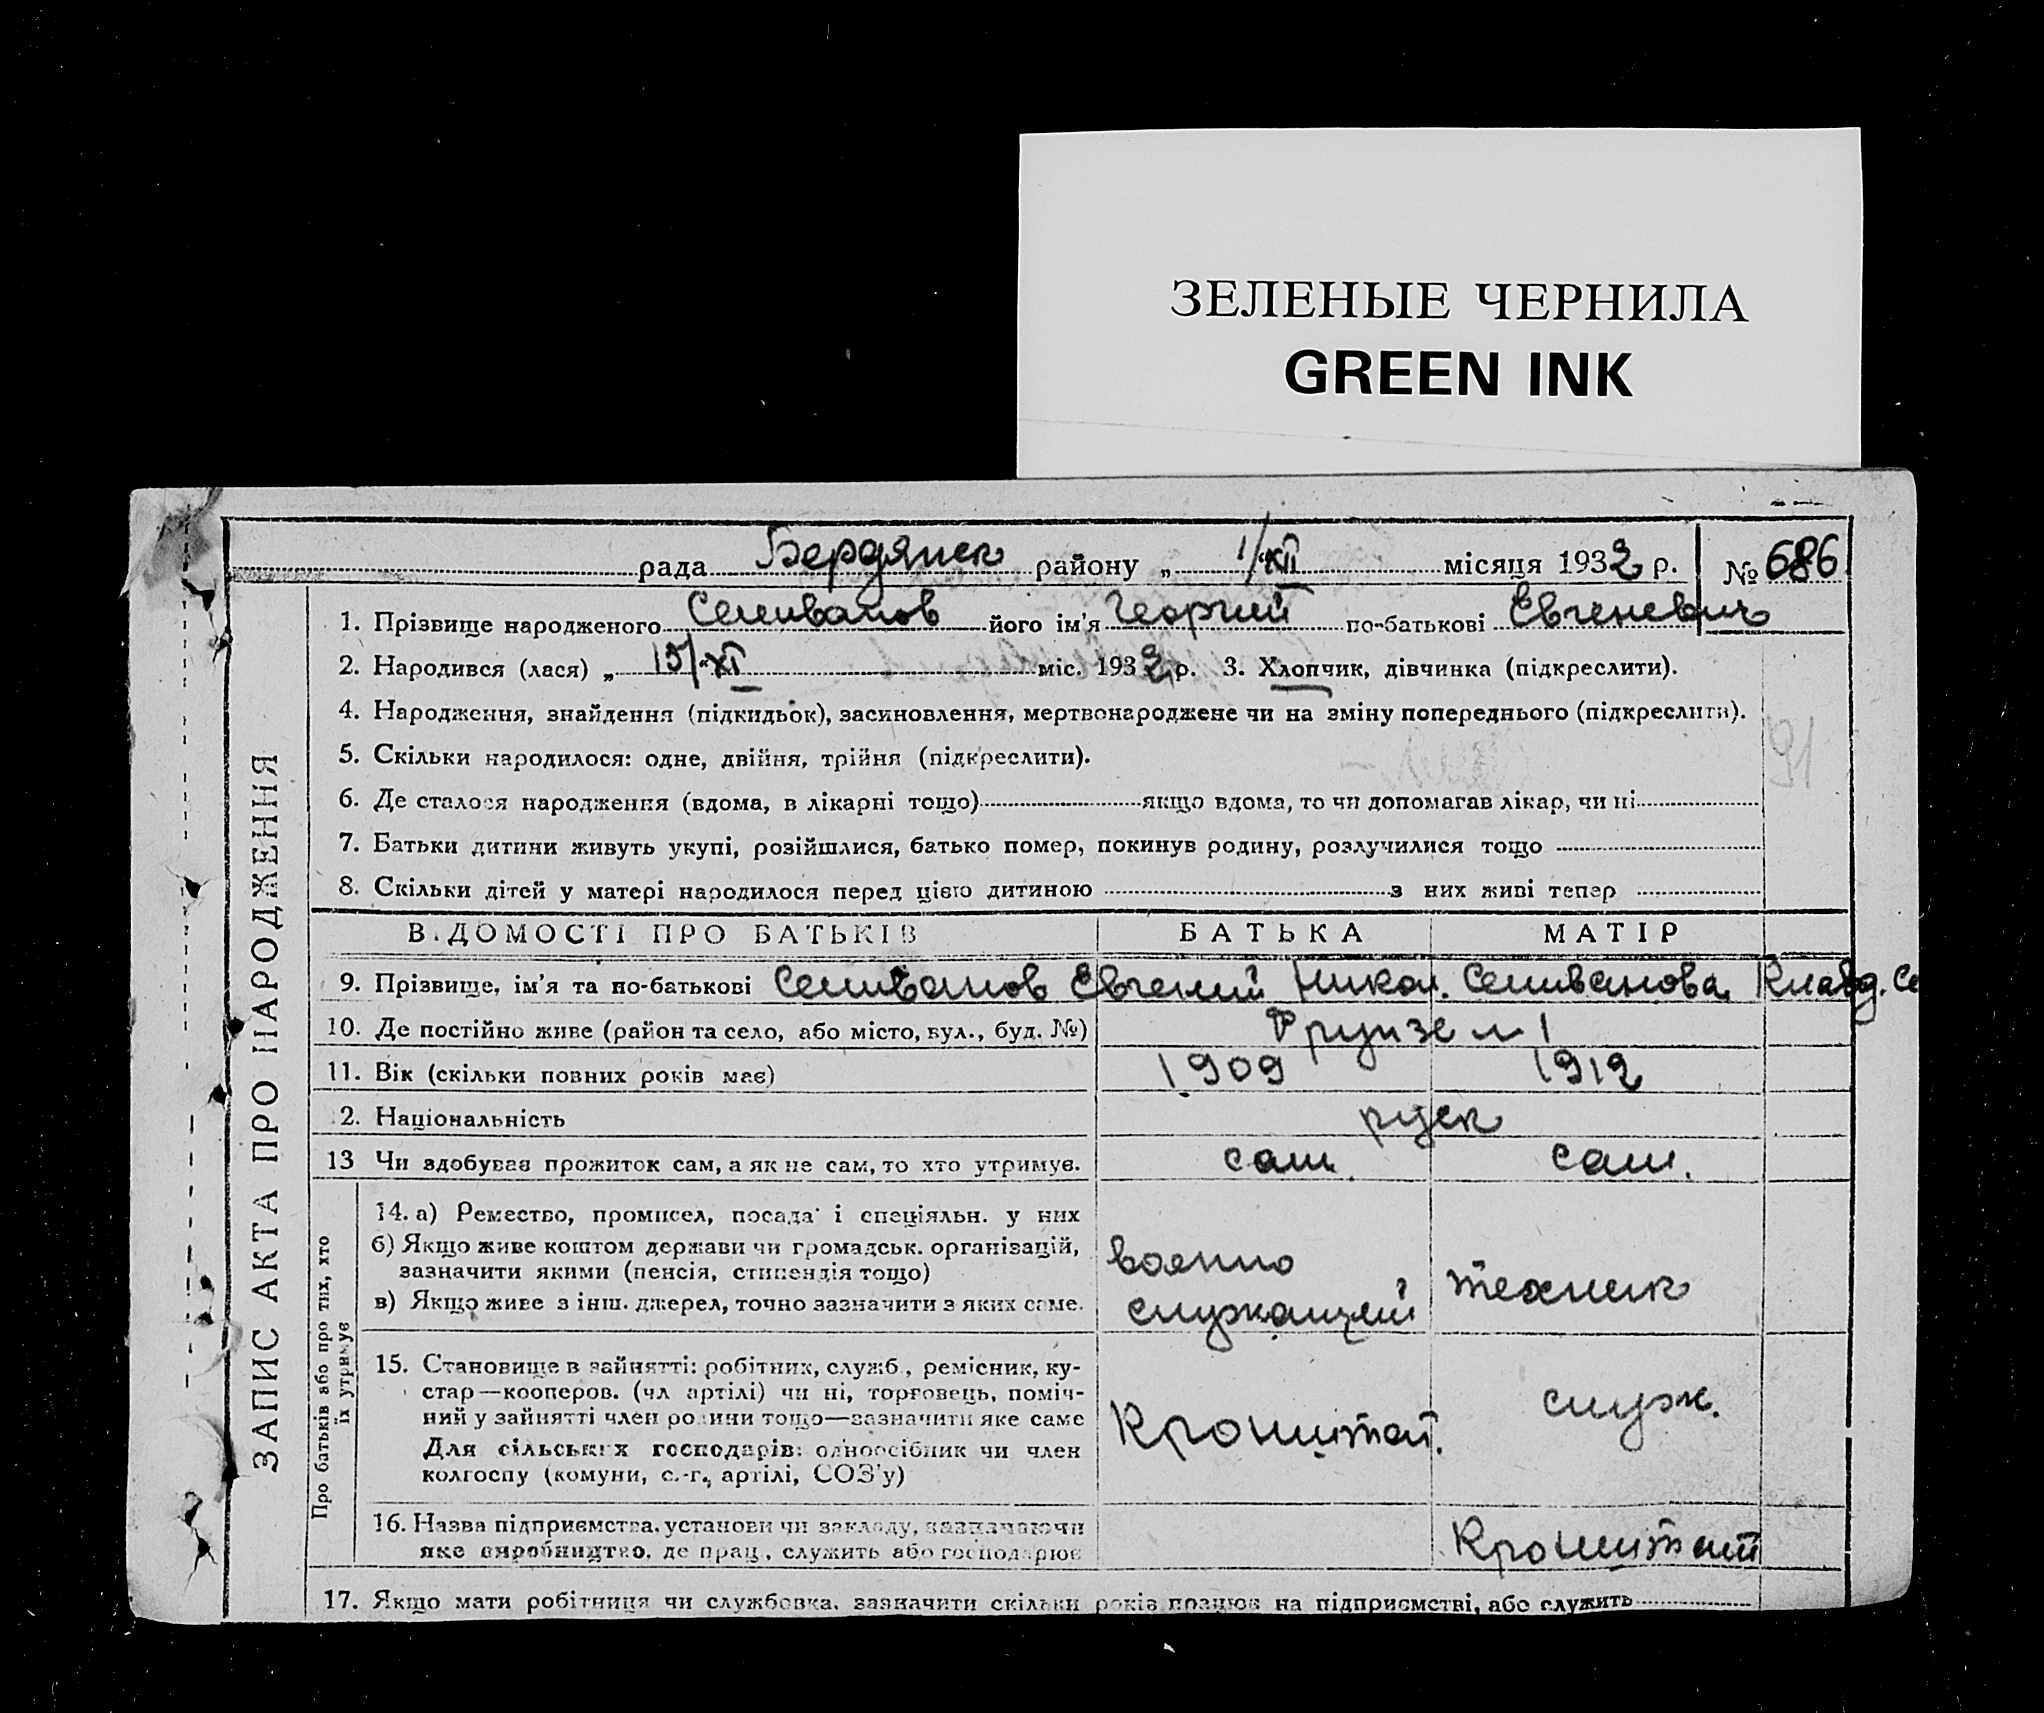 ЗЕЛЕНЫЕ ЧЕРНИЛА
GREEN INK
рада Бердянск району „ 1/XII місяця 1932 р. № 686
1. Прізвище народженого Селиванов його ім'я Георгий по-батькові Евгеневич
2. Народився (лася) „ 15/XI міс. 1932 р. 3. Хлопчик, дівчинка (підкреслити).
4. Народження, знайдення (підкидьок), засиновлення, мертвонароджене чи на зміну попереднього (підкреслити).
5. Скільки народилося: одне, двійня, трійня (підкреслити).
6. Де сталося народження (вдома, в лікарні тощо) якщо вдома, то чи допомагав лікар, чи ні
7. Батьки дитини живуть укупі, розійшлися, батько помер, покинув родину, розлучилися тощо
8. Скільки дітей у матері народилося перед цією дитиною з них живі тепер
ЗАПИС АКТА ПРО НАРОДЖЕННЯ
ВІДОМОСТІ ПРО БАТЬКІВ БАТЬКА МАТІР
9. Прізвище, ім'я та по-батькові Селиванов Евгений Никол. Селиванова Клавд. Се
10. Де постійно живе (район та село, або місто, вул., буд. №) Фрунзе 1
11. Вік (скільки повних років має) 1909 1912
2. Національність руск
13 Чи здобуває прожиток сам, а як не сам, то хто утримує. сам. сам.
Про батьків або про тих, хто
їх утримує
14. а) Ремество, промисел, посада і спеціяльн. у них
б) Якщо живе коштом держави чи громадськ. організацій,
зазначити якими (пенсія, стипендія тощо)
в) Якщо живе з інш. джерел, точно зазначити з яких саме.
военно
служащий
техник
15. Становище в зайнятті: робітник, служб., ремісник, ку-
стар—кооперов. (чл артілі) чи ні, торговець, поміч-
ний у зайнятті член родини тощо—зазначити яке саме
Для сільських господарів: одноосібник чи член
колгоспу (комуни, с.-г., артілі, СОЗ'у)
Кронштат.
служ.
16. Назва підприємства, установи чи закладу, зазначаючи
яке виробництво, де прац., служить або господарює
Кронштат
17. Якщо мати робітниця чи службовка, зазначити скільки років працює на підприємстві, або служить